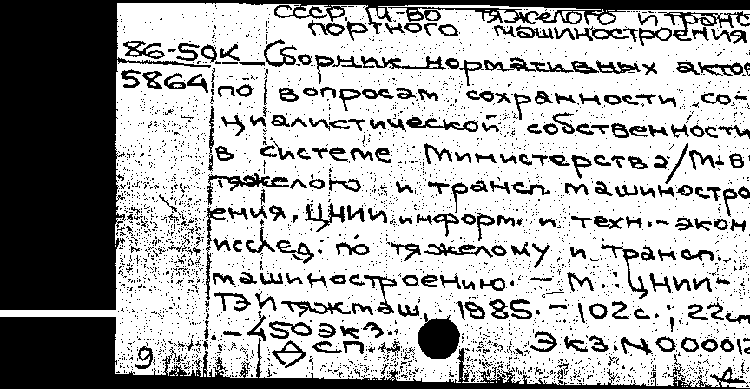 СССР. М-во тяжелого и транс
портного машиностроения
86-50к Сборник нормативных актов
5864 по вопросам сохранности со-
циалистической собственности
в системе Министерства / М-в
тяжелого и трансп. машиностро
ения, ЦНИИ информ. и техн.-экон
исслед. по тяжелому и трансп.
машиностроению. - М.: ЦНИИ-
ТЭИтяжмаш, 1985. - 102с.; 22см
- 450экз.
9 сп. Экз.N00001